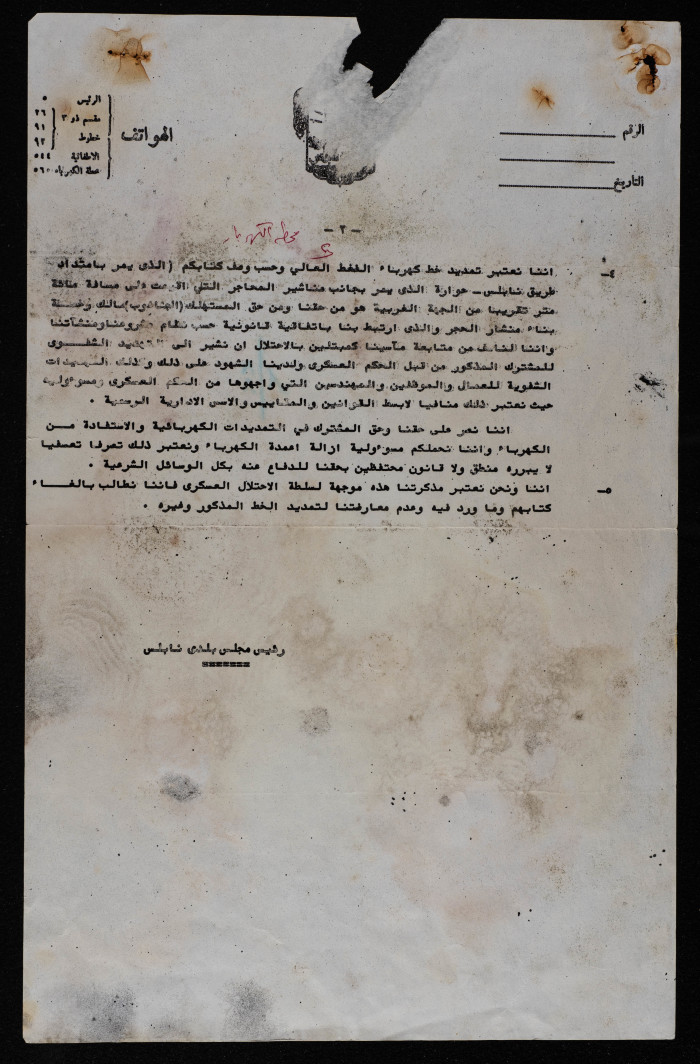 الرقم
التاريخ
الهواتف
الرئيس ٥
مقسم ذو ٣ ٢٦
خطوط ٩١
٩٢
الاطفائية ٥٤٤
محطة الكهرباء ٥٦٥
- ٢ -
محطة الكهرباء
٤- اننا نعتبر تمديد خط كهرباء الضغط العالي وحسب وصف كتابكم (الذى يمر بامتداد
طريق نابلس - حوارة الذى يمر بجانب مناشير المحاجر التي اقيمت على مسافة مائة
متر تقريبا من الجهة الغربية هو من حقنا ومن حق المستهلك مالك رخصة
بناء منشار الحجر والذى ارتبط بنا باتفاقية قانونية حسب نظام مشروعنا ومنشآتنا
واننا لنأسف من متابعة مآسينا كمبتلين بالاحتلال ان نشير الى التهديد الشفوى
للمشترك المذكور من قبل الحكم العسكرى ولدينا الشهود على ذلك وكذلك التهديدات
الشفوية للعمال والموظفين والمهندسين التي واجهوها من الحكم العسكرى ومسوءوليه
حيث نعتبر ذلك منافيا لابسط القوانين والمقاييس والاسس الادارية الرسمية .
اننا نصر على حقنا وحق المشترك في التمديدات الكهربائية والاستفادة من
الكهرباء واننا نحملكم مسوءولية ازالة اعمدة الكهرباء ونعتبر ذلك تصرفا تعسفيا
لا يبرره منطق ولا قانون محتفظين بحقنا للدفاع عنه بكل الوسائل الشرعية .
٥- اننا ونحن نعتبر مذكرتنا هذه موجهة لسلطة الاحتلال العسكرى فاننا نطالب بالغاء
كتابهم وما ورد فيه وعدم معارضتنا لتمديد الخط المذكور وغيره .
رئيس مجلس بلدى نابلس
=======